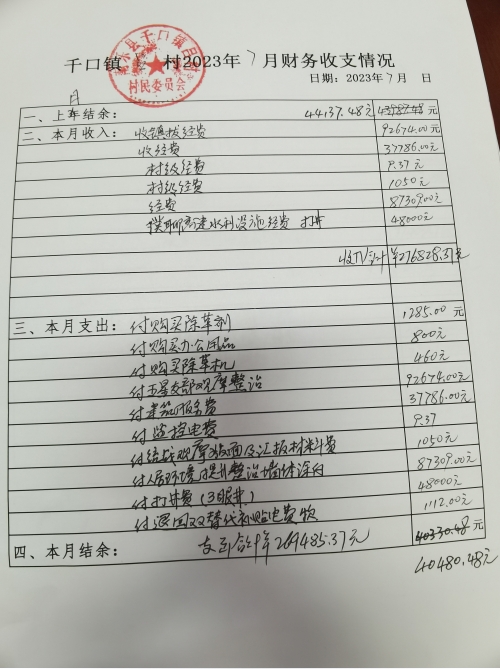 千口镇 村2023年7月财务收支情况
日期：2023年7月 日
月
一、上年结余： 44137.48元 43987.48元
二、本月收入：收镇拨经费 92674.00元
收经费 37786.00元
村级经费 9.37元
村级经费 1050元
经费 87309.00元
水利设施经费 打井 48000元
收入合计 ¥276828.37元
三、本月支出：付购买除草剂 1285.00元
付购买办公用品 800元
付购买除草机 460元
付五星支部观摩整治 92674.00元
付建筑服务费 37786.00元
付监控电费 9.37
付 观摩版面及汇报材料费 1050元
付人居环境提升整治墙体涂白 87309.00元
付打井费（3眼井） 48000元
付退回双替代补贴电费款 1112.00元
四、本月结余： 支出合计¥269485.37元 40330.48元
40480.48元
村民委员会